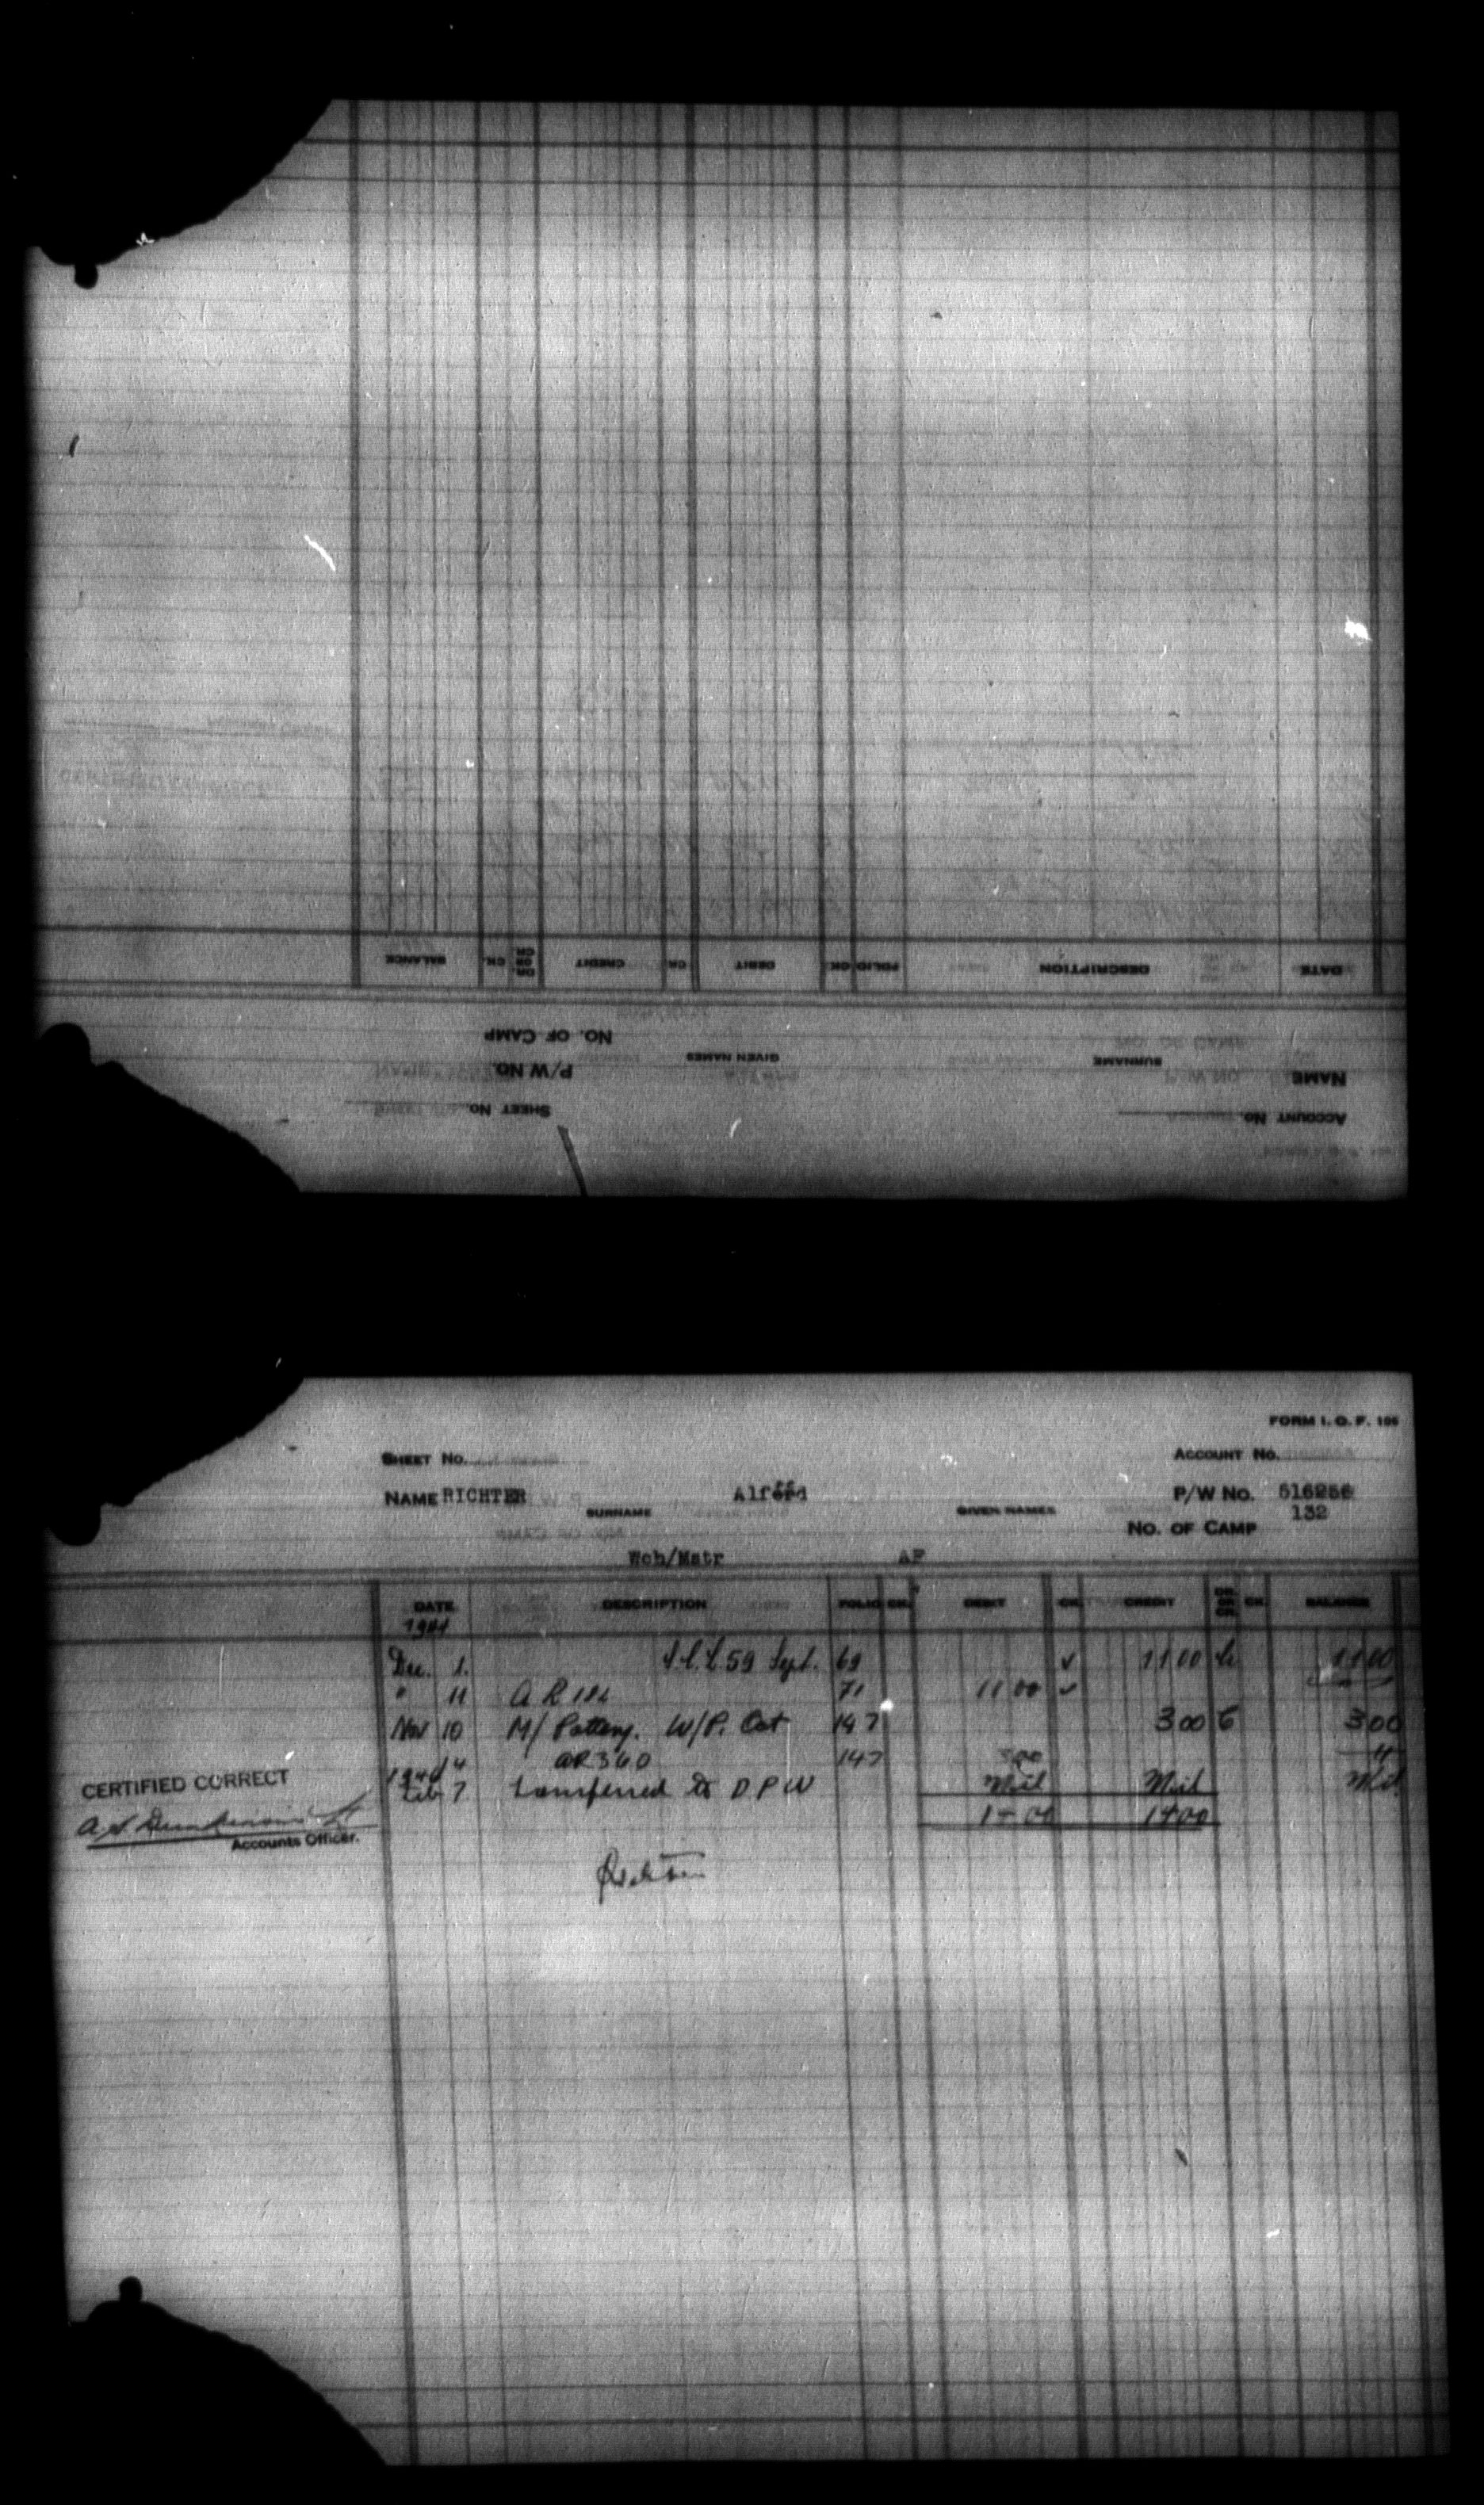 DATE
DESCRIPTION
FOLIO
CK.
DEBIT
CK.
CREDIT
DR. OR CR.
CK.
BALANCE
NAME
SURNAME
GIVEN NAMES
P/W NO.
NO. OF CAMP
ACCOUNT NO.
SHEET NO.
FORM I. O. F. 106
SHEET NO. ACCOUNT NO.
NAME RICHTER Alfred P/W NO. 516256
SURNAME GIVEN NAMES 132
NO. OF CAMP
Wch/Mstr AF
DATE DESCRIPTION FOLIO CK. DEBIT CK. CREDIT DR. OR CR. CK. BALANCE
Dec. 1. 59 Sept. 69 ✓ 11 00 11 00
" 11 A R 71 11 00 ✓
Nov 10 M/ Pottery. W/P. Oct 147 3 00 3 00
4 AR 360 147 3 00
1946
Feb 7 Transferred to D P W Nil Nil Nil
14 00 14 00
CERTIFIED CORRECT
Accounts Officer.